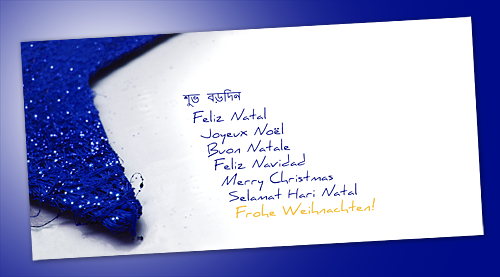 শুভ বড়দিন
Feliz Natal
Joyeux Noël
Buon Natale
Feliz Navidad
Merry Christmas
Selamat Hari Natal
Frohe Weihnachten!